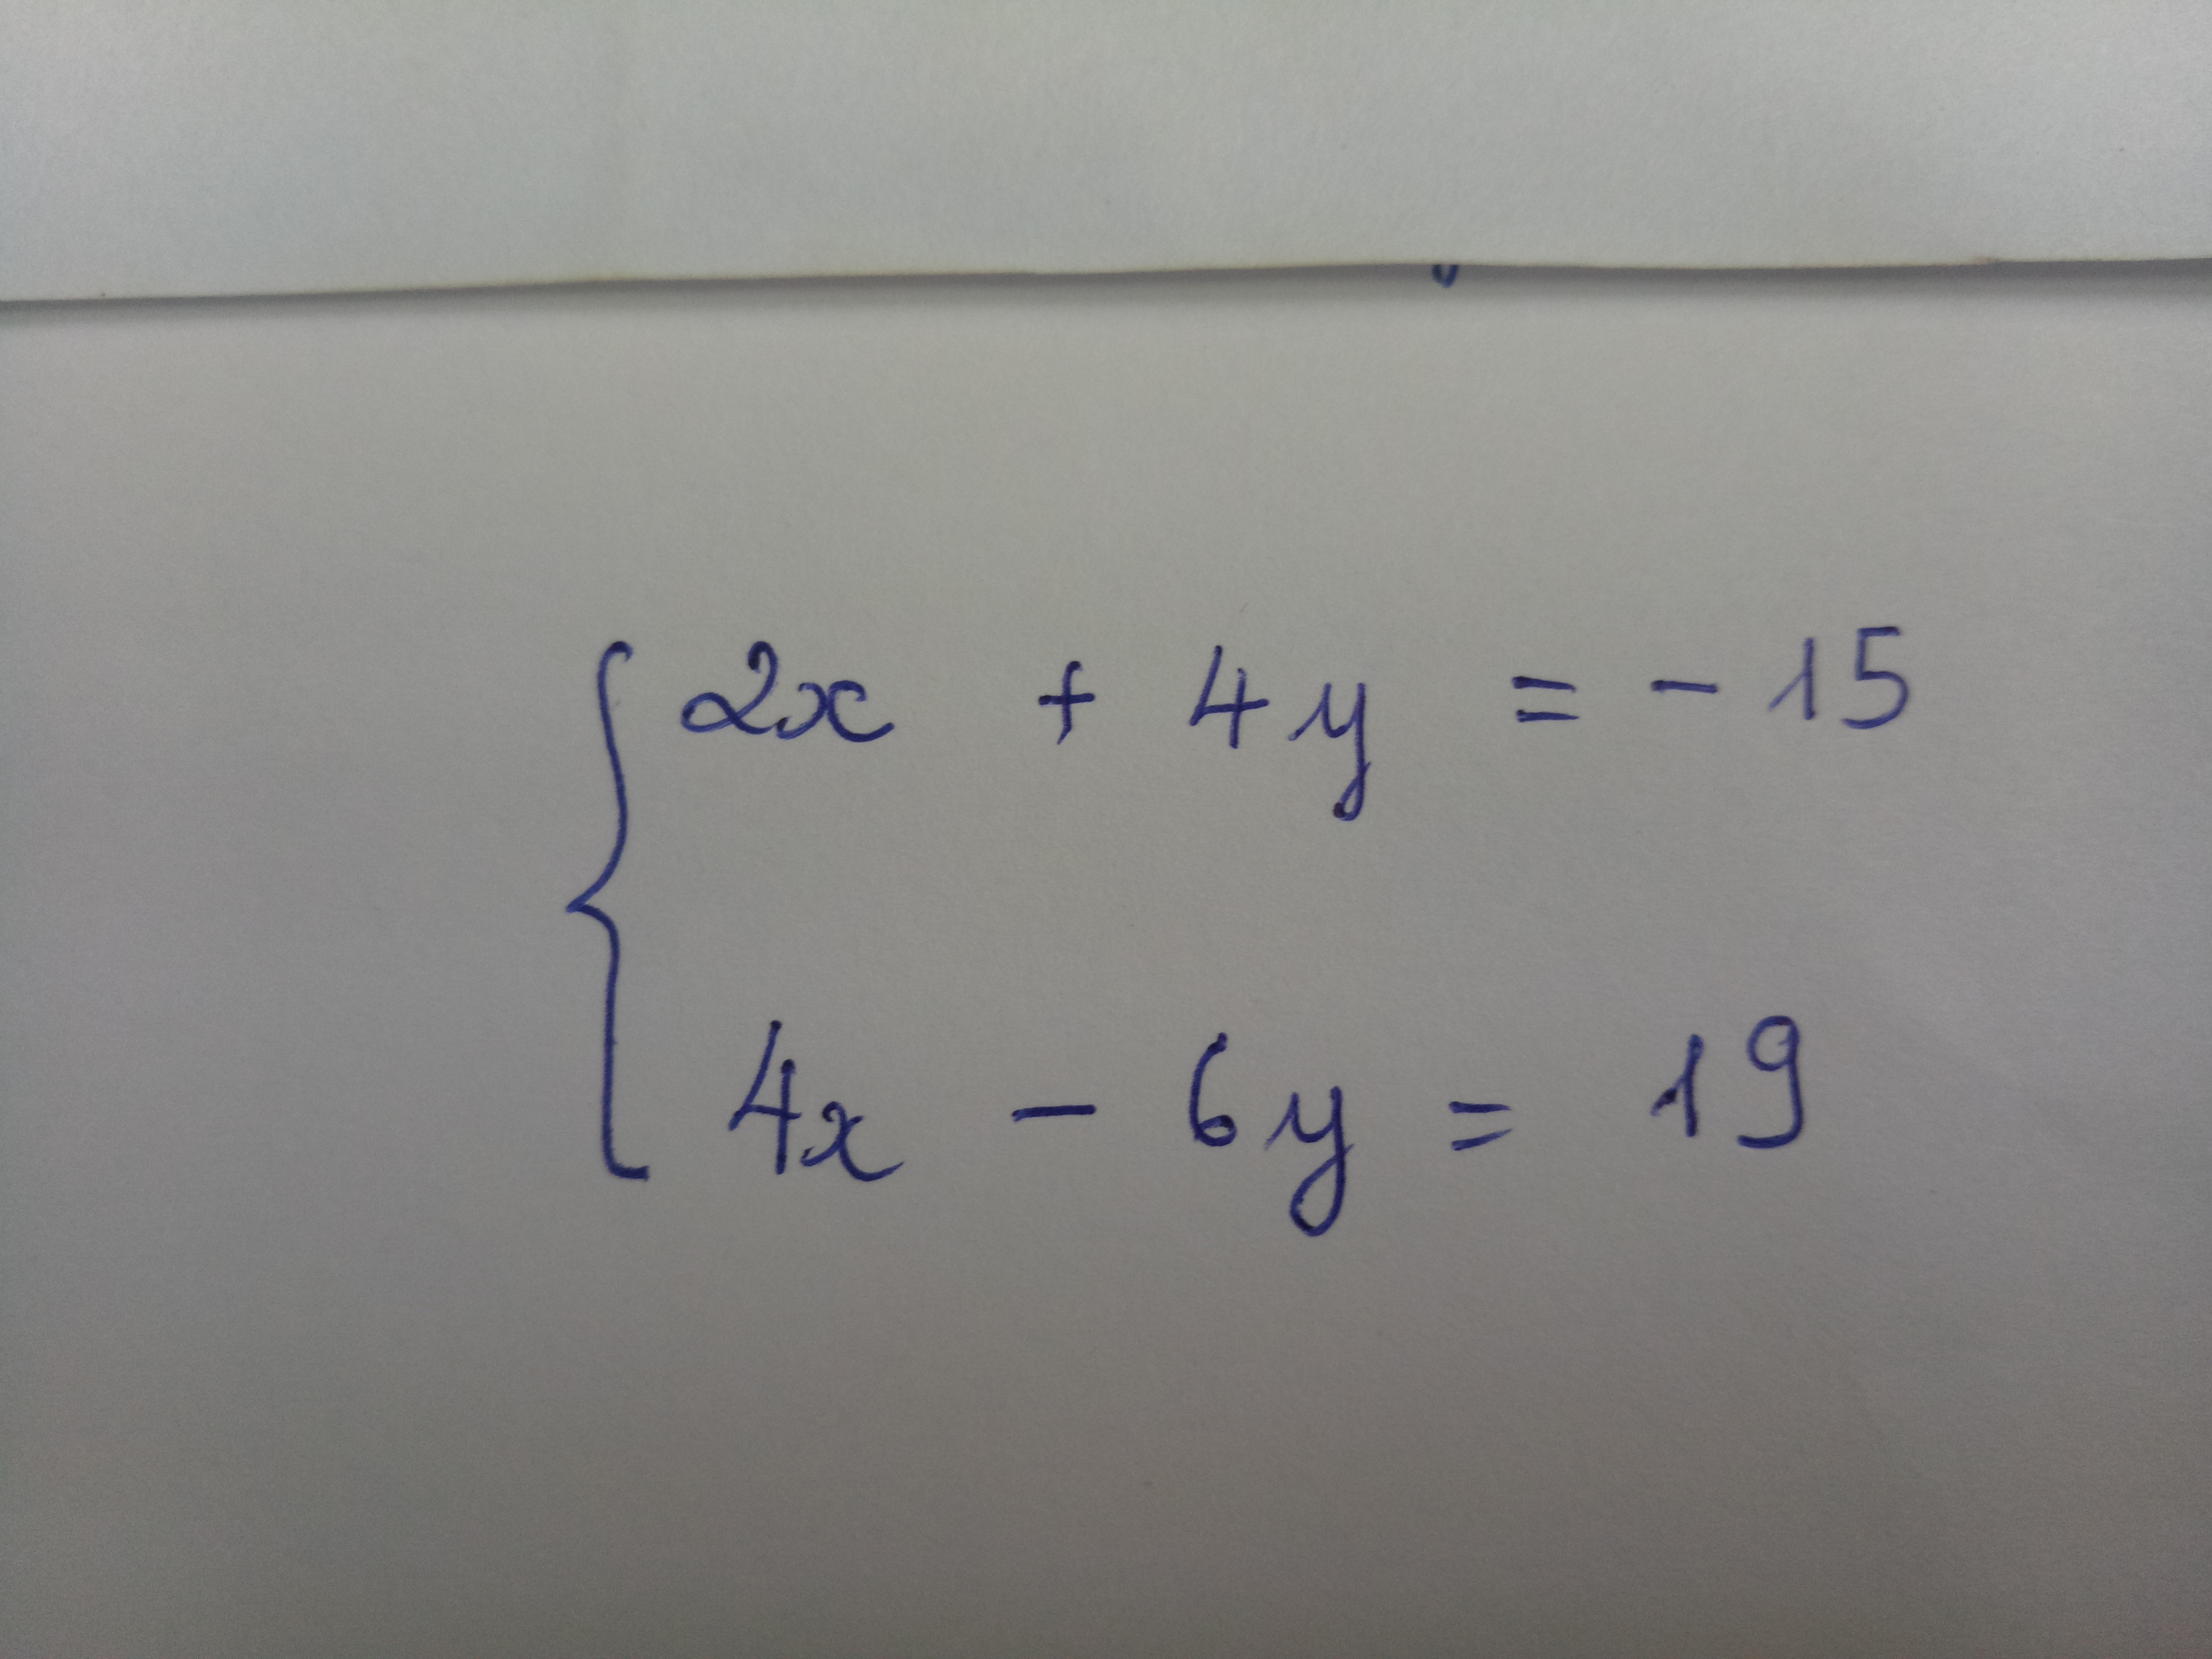 2x + 4y = - 15
4x - 6y = 19